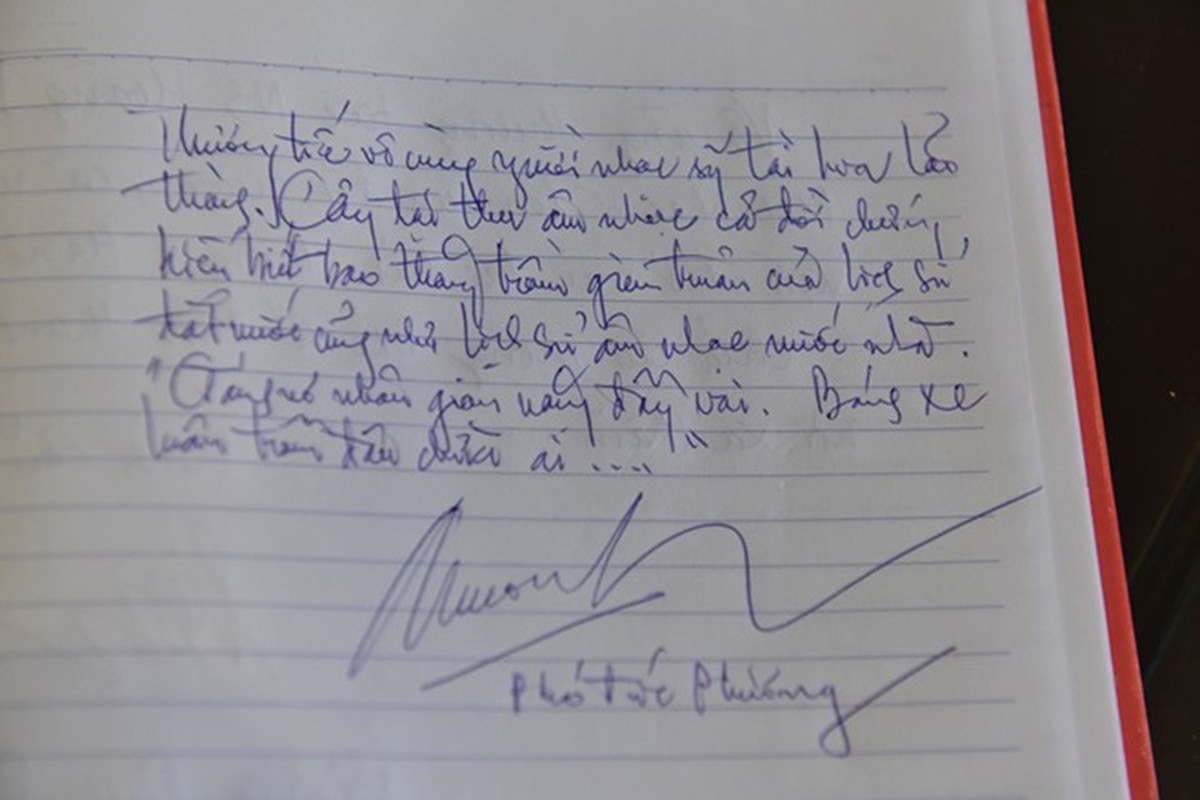 Thương tiếc vô cùng người nhạc sỹ tài hoa lão
thành. Cây đại thụ âm nhạc cả đời chứng
kiến biết bao thăng trầm gian truân của lịch sử
đất nước cũng như lịch sử âm nhạc nước nhà.
nhân gian nặng đầy vai. Bóng xe
luân trầm đâu chờ ai ...."
Phó Đức Phương